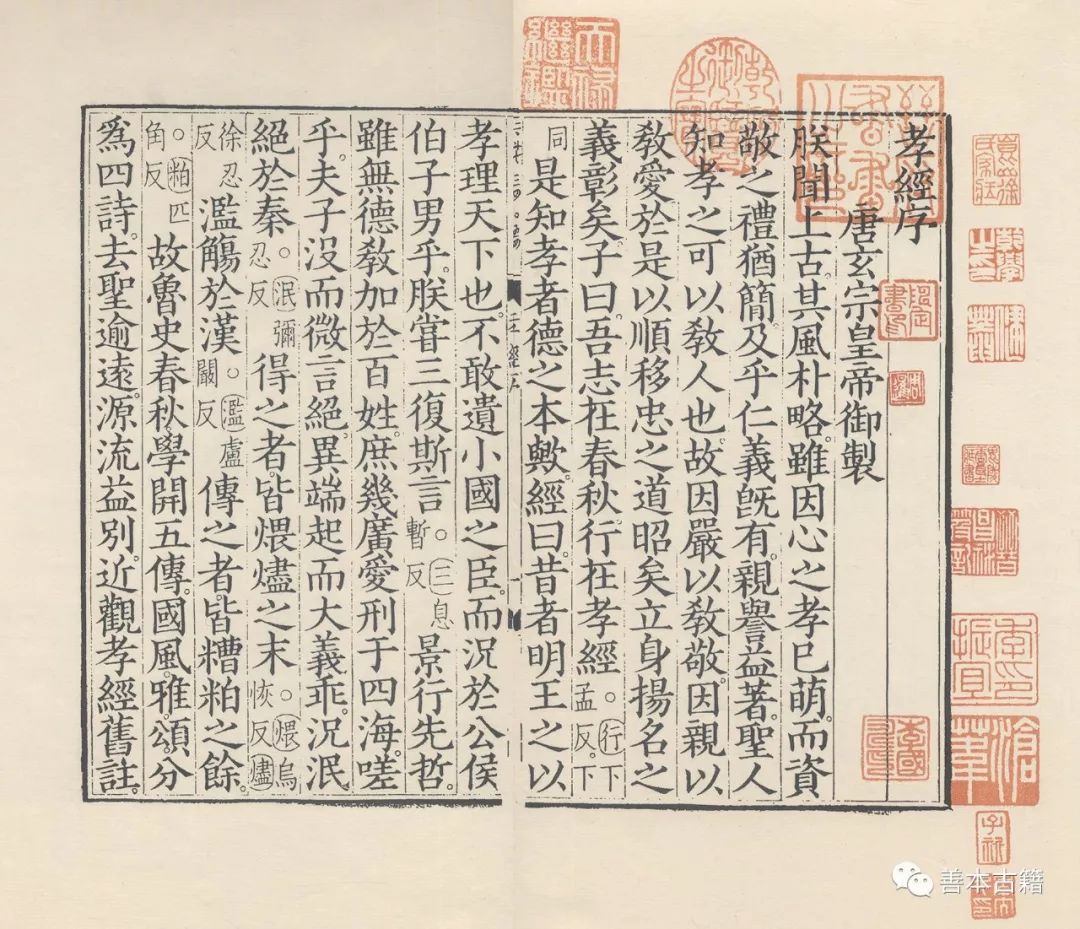 孝經序
唐玄宗皇帝御製
朕聞上古。其風朴略。雖因心之孝已萌。而資
敬之禮猶簡。及乎仁義旣有。親譽益著。聖人
知孝之可以敎人也。故因嚴以敎敬。因親以
敎愛。於是以順移忠之道昭矣。立身揚名之
義彰矣。子曰。吾志在春秋。行在孝經。行下孟反。下
同是知孝者德之本歟。經曰。昔者明王之以
孝理天下也。不敢遺小國之臣。而況於公侯
伯子男乎。朕嘗三復斯言。三息暫反景行先哲。
雖無德敎加於百姓。庶幾廣愛刑于四海。嗟
乎。夫子沒而微言絕。異端起而大義乖。況泯
絕於秦。泯彌忍反得之者。皆煨燼之末。煨烏恢反燼
徐忍反濫觴於漢。濫盧闞反傳之者。皆糟粕之餘。
。粕匹角反故魯史春秋。學開五傳。國風。雅。頌。分
爲四詩。去聖逾遠。源流益別。近觀孝經舊註。
善本古籍